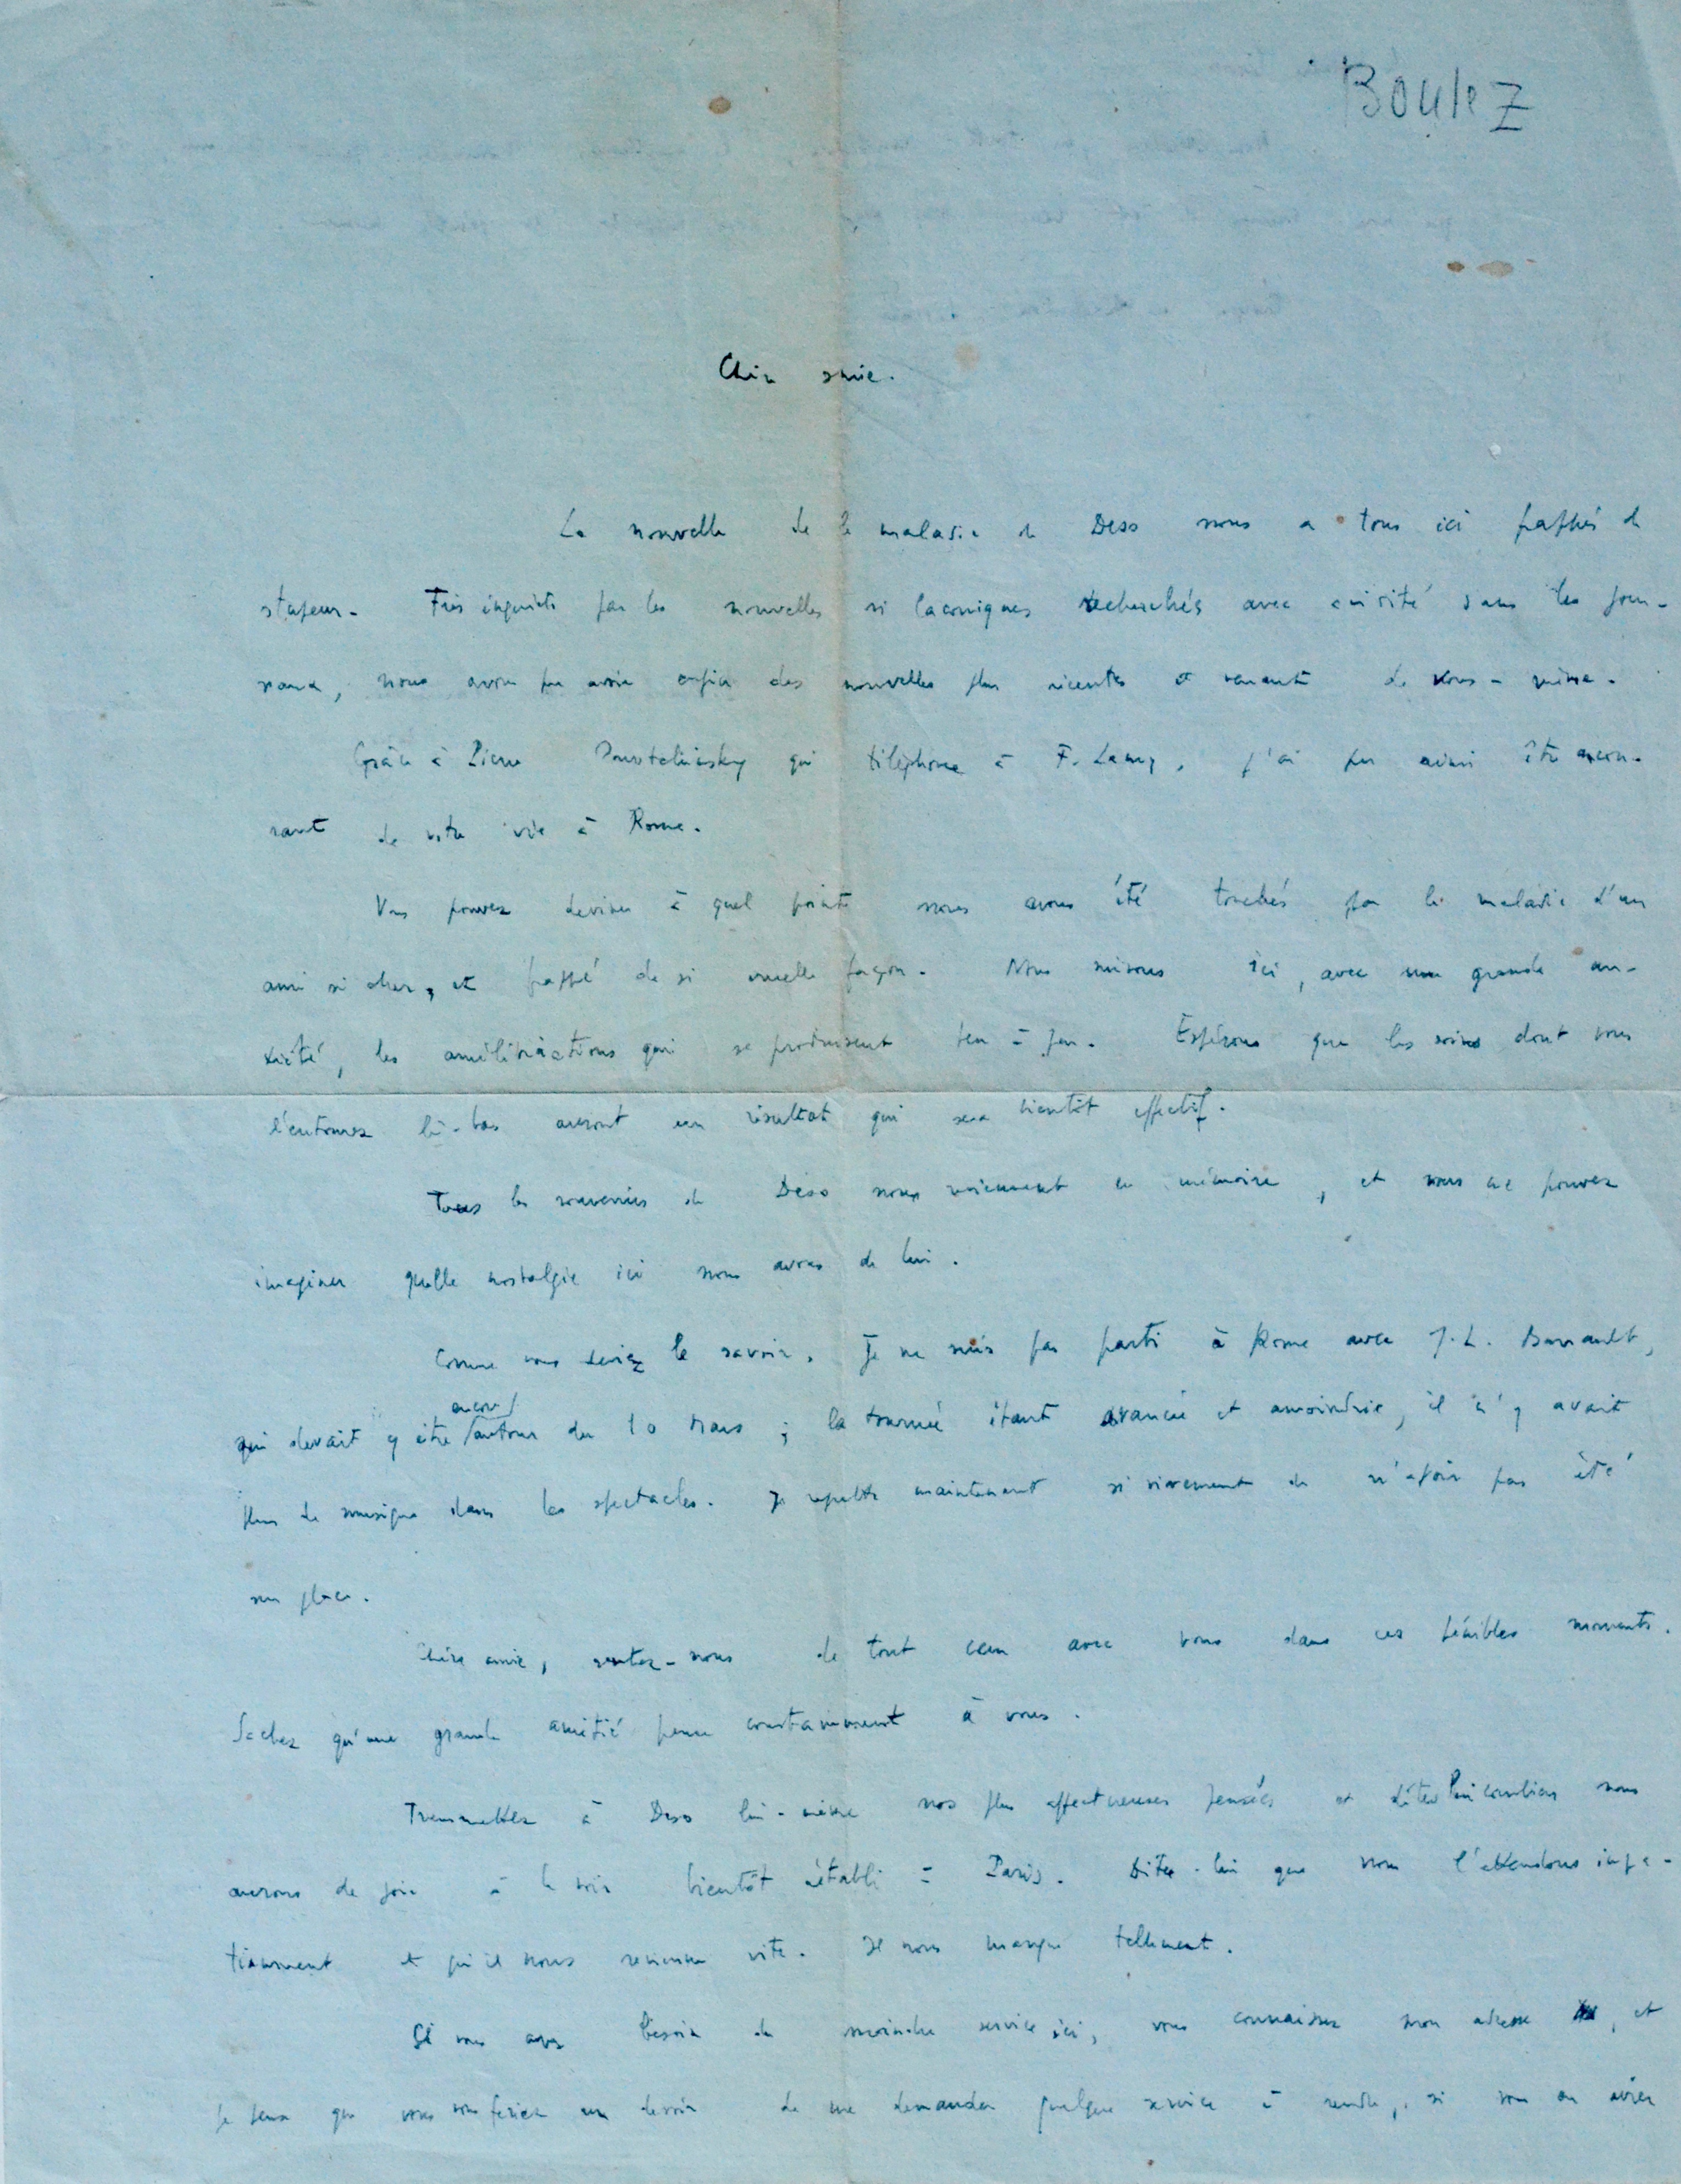 Boulez
Chère amie.
La nouvelle de la maladie de Deso nous a tous ici frappés de
stupeur. Très inquiets par les nouvelles si laconiques recherchés avec avidité dans les jour-
naux, nous avons pu avoir enfin des nouvelles plus récentes et venant de vous-même.
Grâce à Pierre Souvtchinsky qui téléphona à F. , j'ai pu ainsi être au cou-
rant de votre vie à Rome.
Vous pouvez deviner à quel point nous avons été touchés par la maladie d'un
ami si cher, et frappé de si cruelle façon. Nous suivons ici, avec une grande an-
xiété, les améliorations qui se produisent peu à peu. Espérons que les soins dont vous
l'entourez là-bas auront un résultat qui sera bientôt effectif.
Tous les souvenirs de Deso nous reviennent en mémoire, et vous ne pouvez
imaginer quelle nostalgie ici nous avons de lui.
Comme vous deviez le savoir, je ne suis pas parti à Rome avec J.L. Barrault,
encore
qui devait y être autour du 10 Mars ; la tournée étant avancée et amoindrie, il n'y avait
plus de musique dans les spectacles. Je regrette maintenant si vivement de n'avoir pas été
sur place.
Chère amie, sentez-nous de tout cœur avec vous dans ces pénibles moments.
Sachez qu'une grande amitié pense constamment à vous.
Transmettez à Deso lui-même nos plus affectueuses pensées et dites lui combien nous
aurons de joie à le voir bientôt rétabli à Paris. Dites-lui que nous l'attendons impa-
tiemment et qu'il nous revienne vite. Il nous manque tellement.
Si vous avez besoin du moindre service ici, vous connaissez mon adresse, et
je pense que vous vous feriez un devoir de me demander quelque service à rendre, si vous en aviez